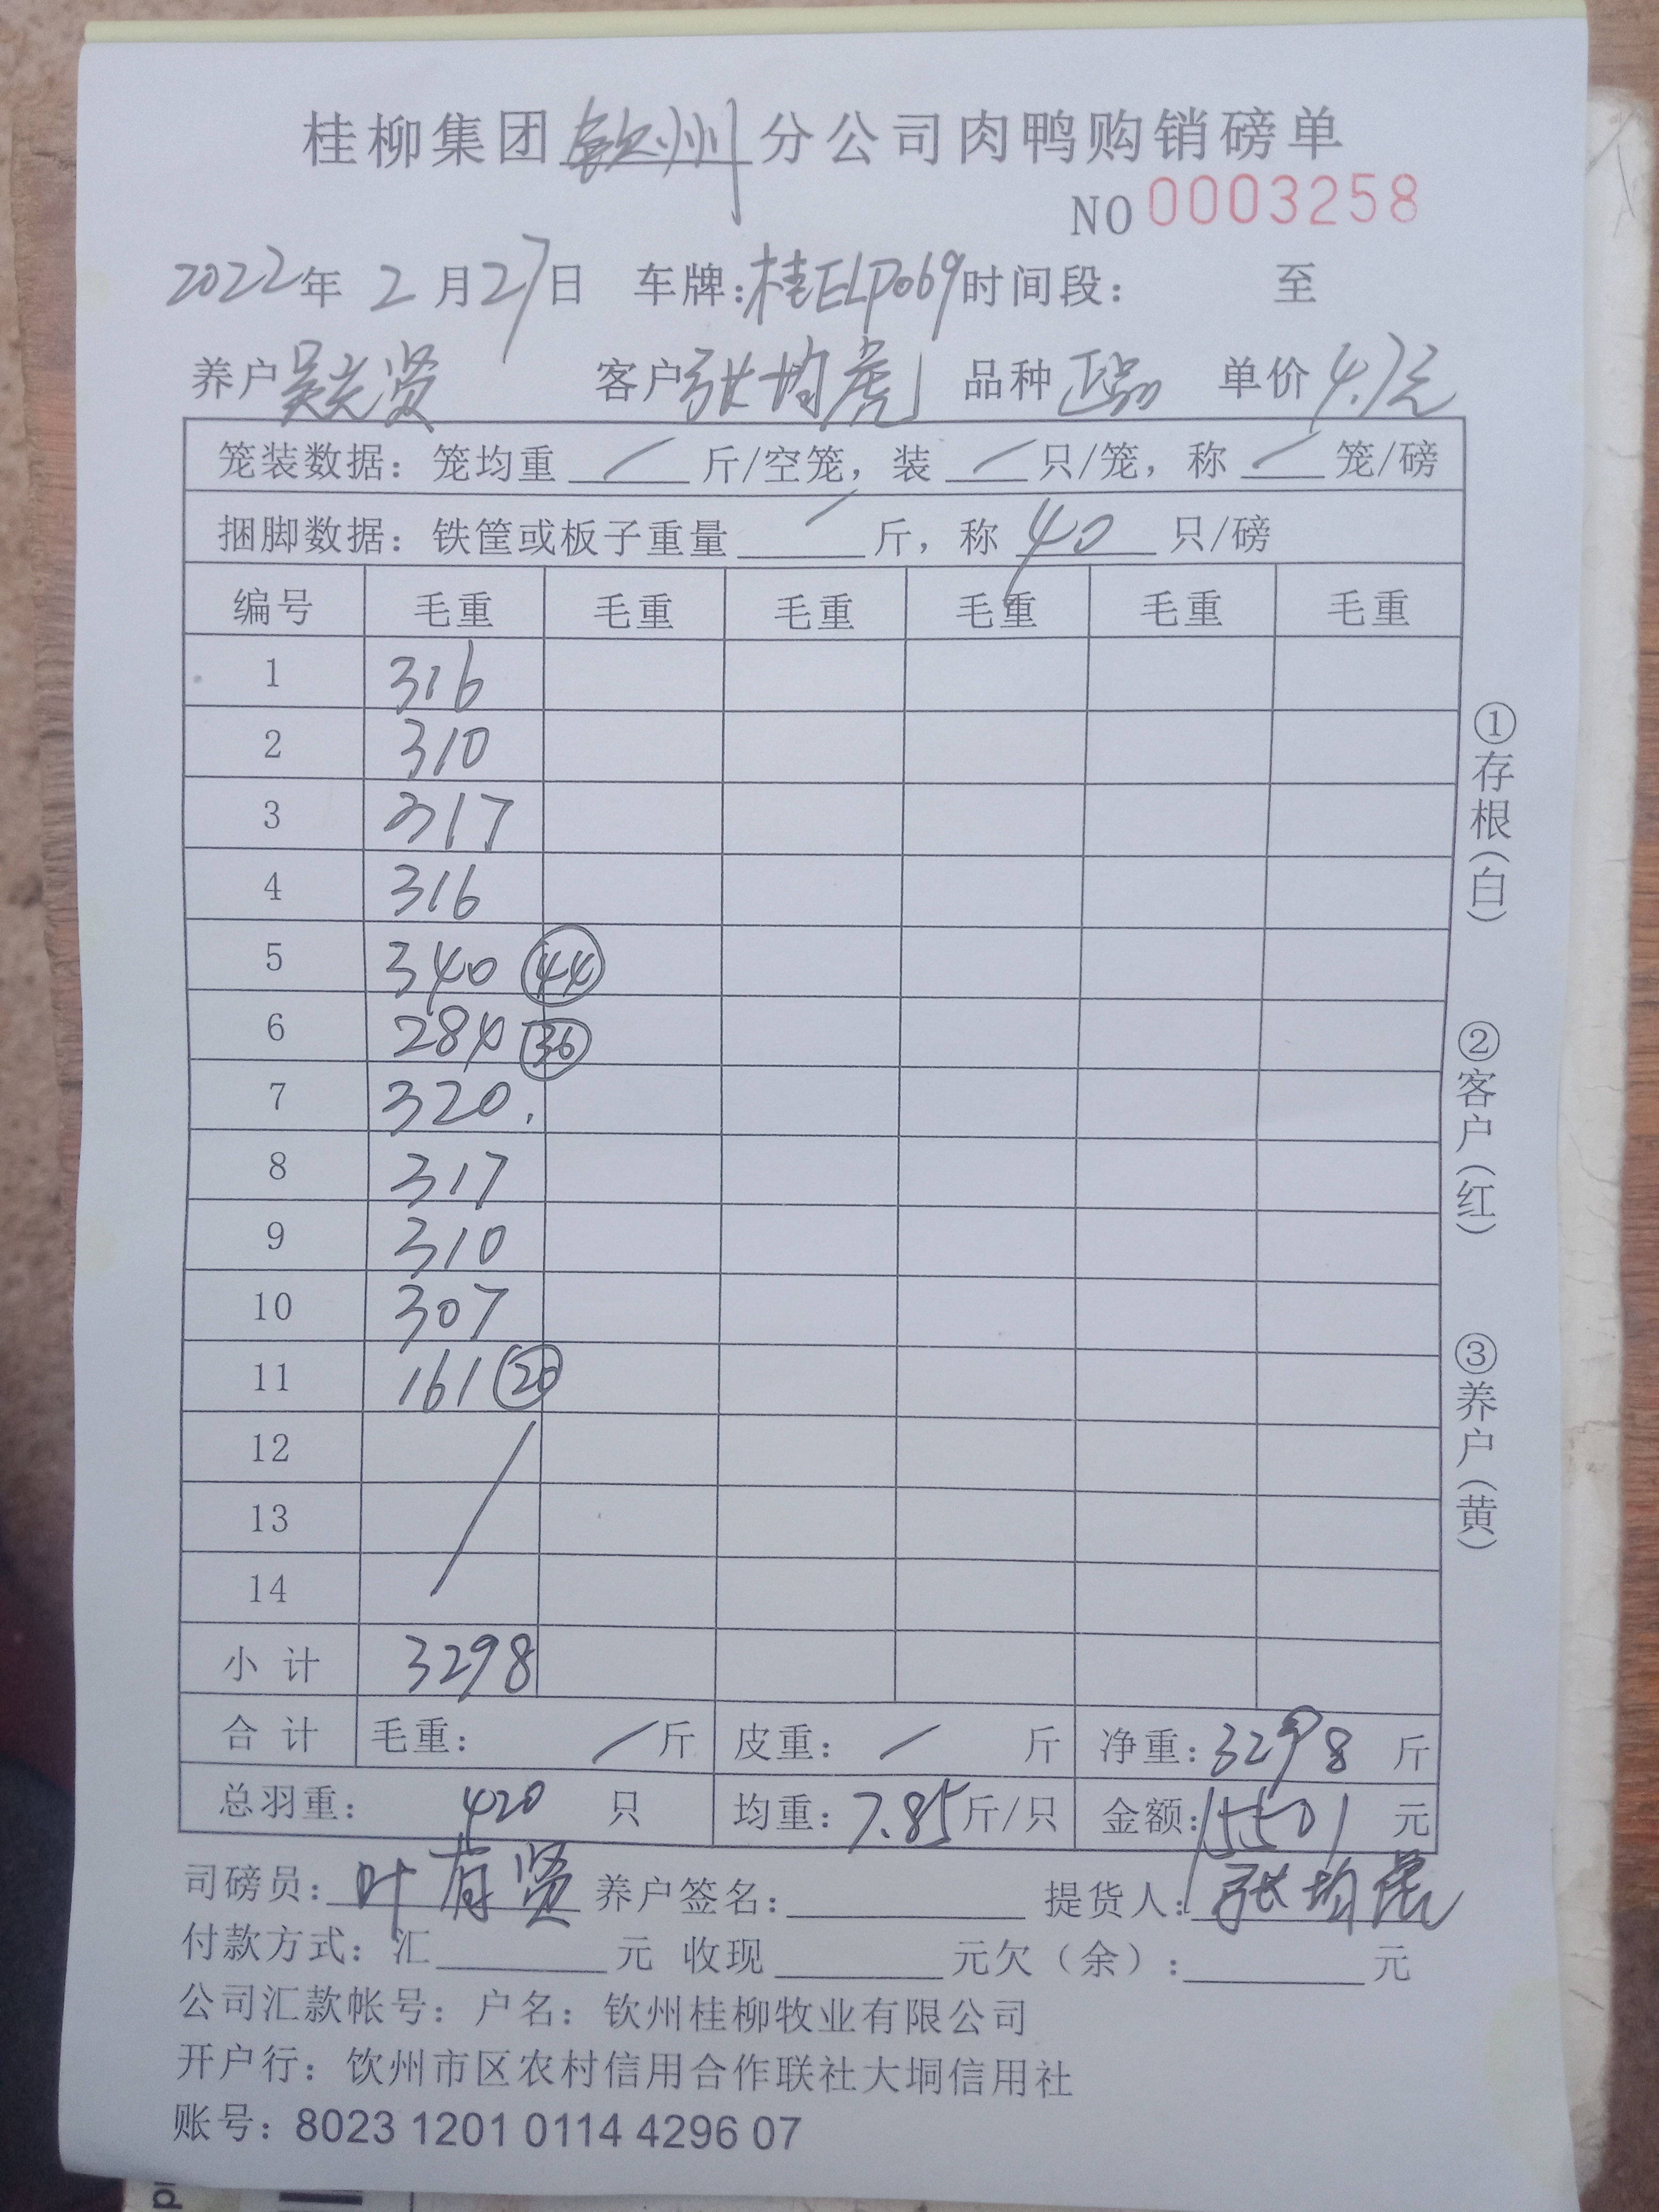 桂柳集团钦州分公司肉鸭购销磅单
NO 0003258
2022年 2月27日 车牌:桂ELP069时间段: 至
养户 客户张均虎 品种 正品 单价 4.7元
笼装数据: 笼均重 / 斤/空笼, 装 / 只/笼, 称 / 笼/磅
捆脚数据: 铁筐或板子重量 / 斤, 称 40 只/磅
编号 毛重 毛重 毛重 毛重 毛重 毛重
1 316
2 310
3 317
4 316
5 340 44
6 284 36
7 320.
8 317
9 310
10 307
11 161 20
12
13
14
小 计 3298
合 计 毛重: / 斤 皮重: / 斤 净重:3298 斤
总羽重: 420 只 均重:7.85斤/只 金额:15501 元
司磅员:叶有贤 养户签名: 提货人:张均虎
付款方式: 汇 元 收现 元欠(余): 元
公司汇款帐号: 户名: 钦州桂柳牧业有限公司
开户行: 钦州市区农村信用合作联社大垌信用社
账号: 8023 1201 0114 4296 07
①存根(白)
②客户(红)
③养户(黄)